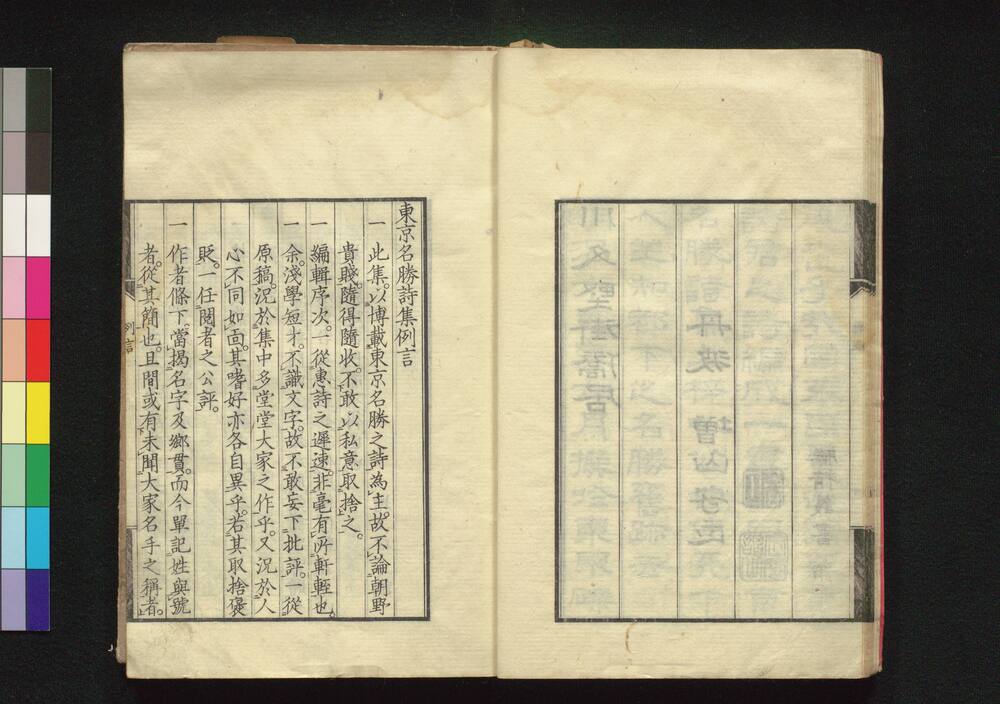 東京名勝詩集例言
一 此集。以博載東京名勝之詩為主。故不論朝野
貴賤。隨得隨收。不敢以私意取捨之。
一 編輯序次。一從惠詩之遲速。非毫有所軒輊也。
一 余淺學短才。不識文字。故不敢妄下批評。一從
原稿。況於集中多堂堂大家之作乎。又況於人
心不同如面。其嗜好亦各自異乎。若其取捨褒
貶。一任閱者之公評。
一 作者條下。當揭名字及鄉貫。而今單記姓與號
者。從其簡也。且間或有未聞大家名手之稱者。
例言